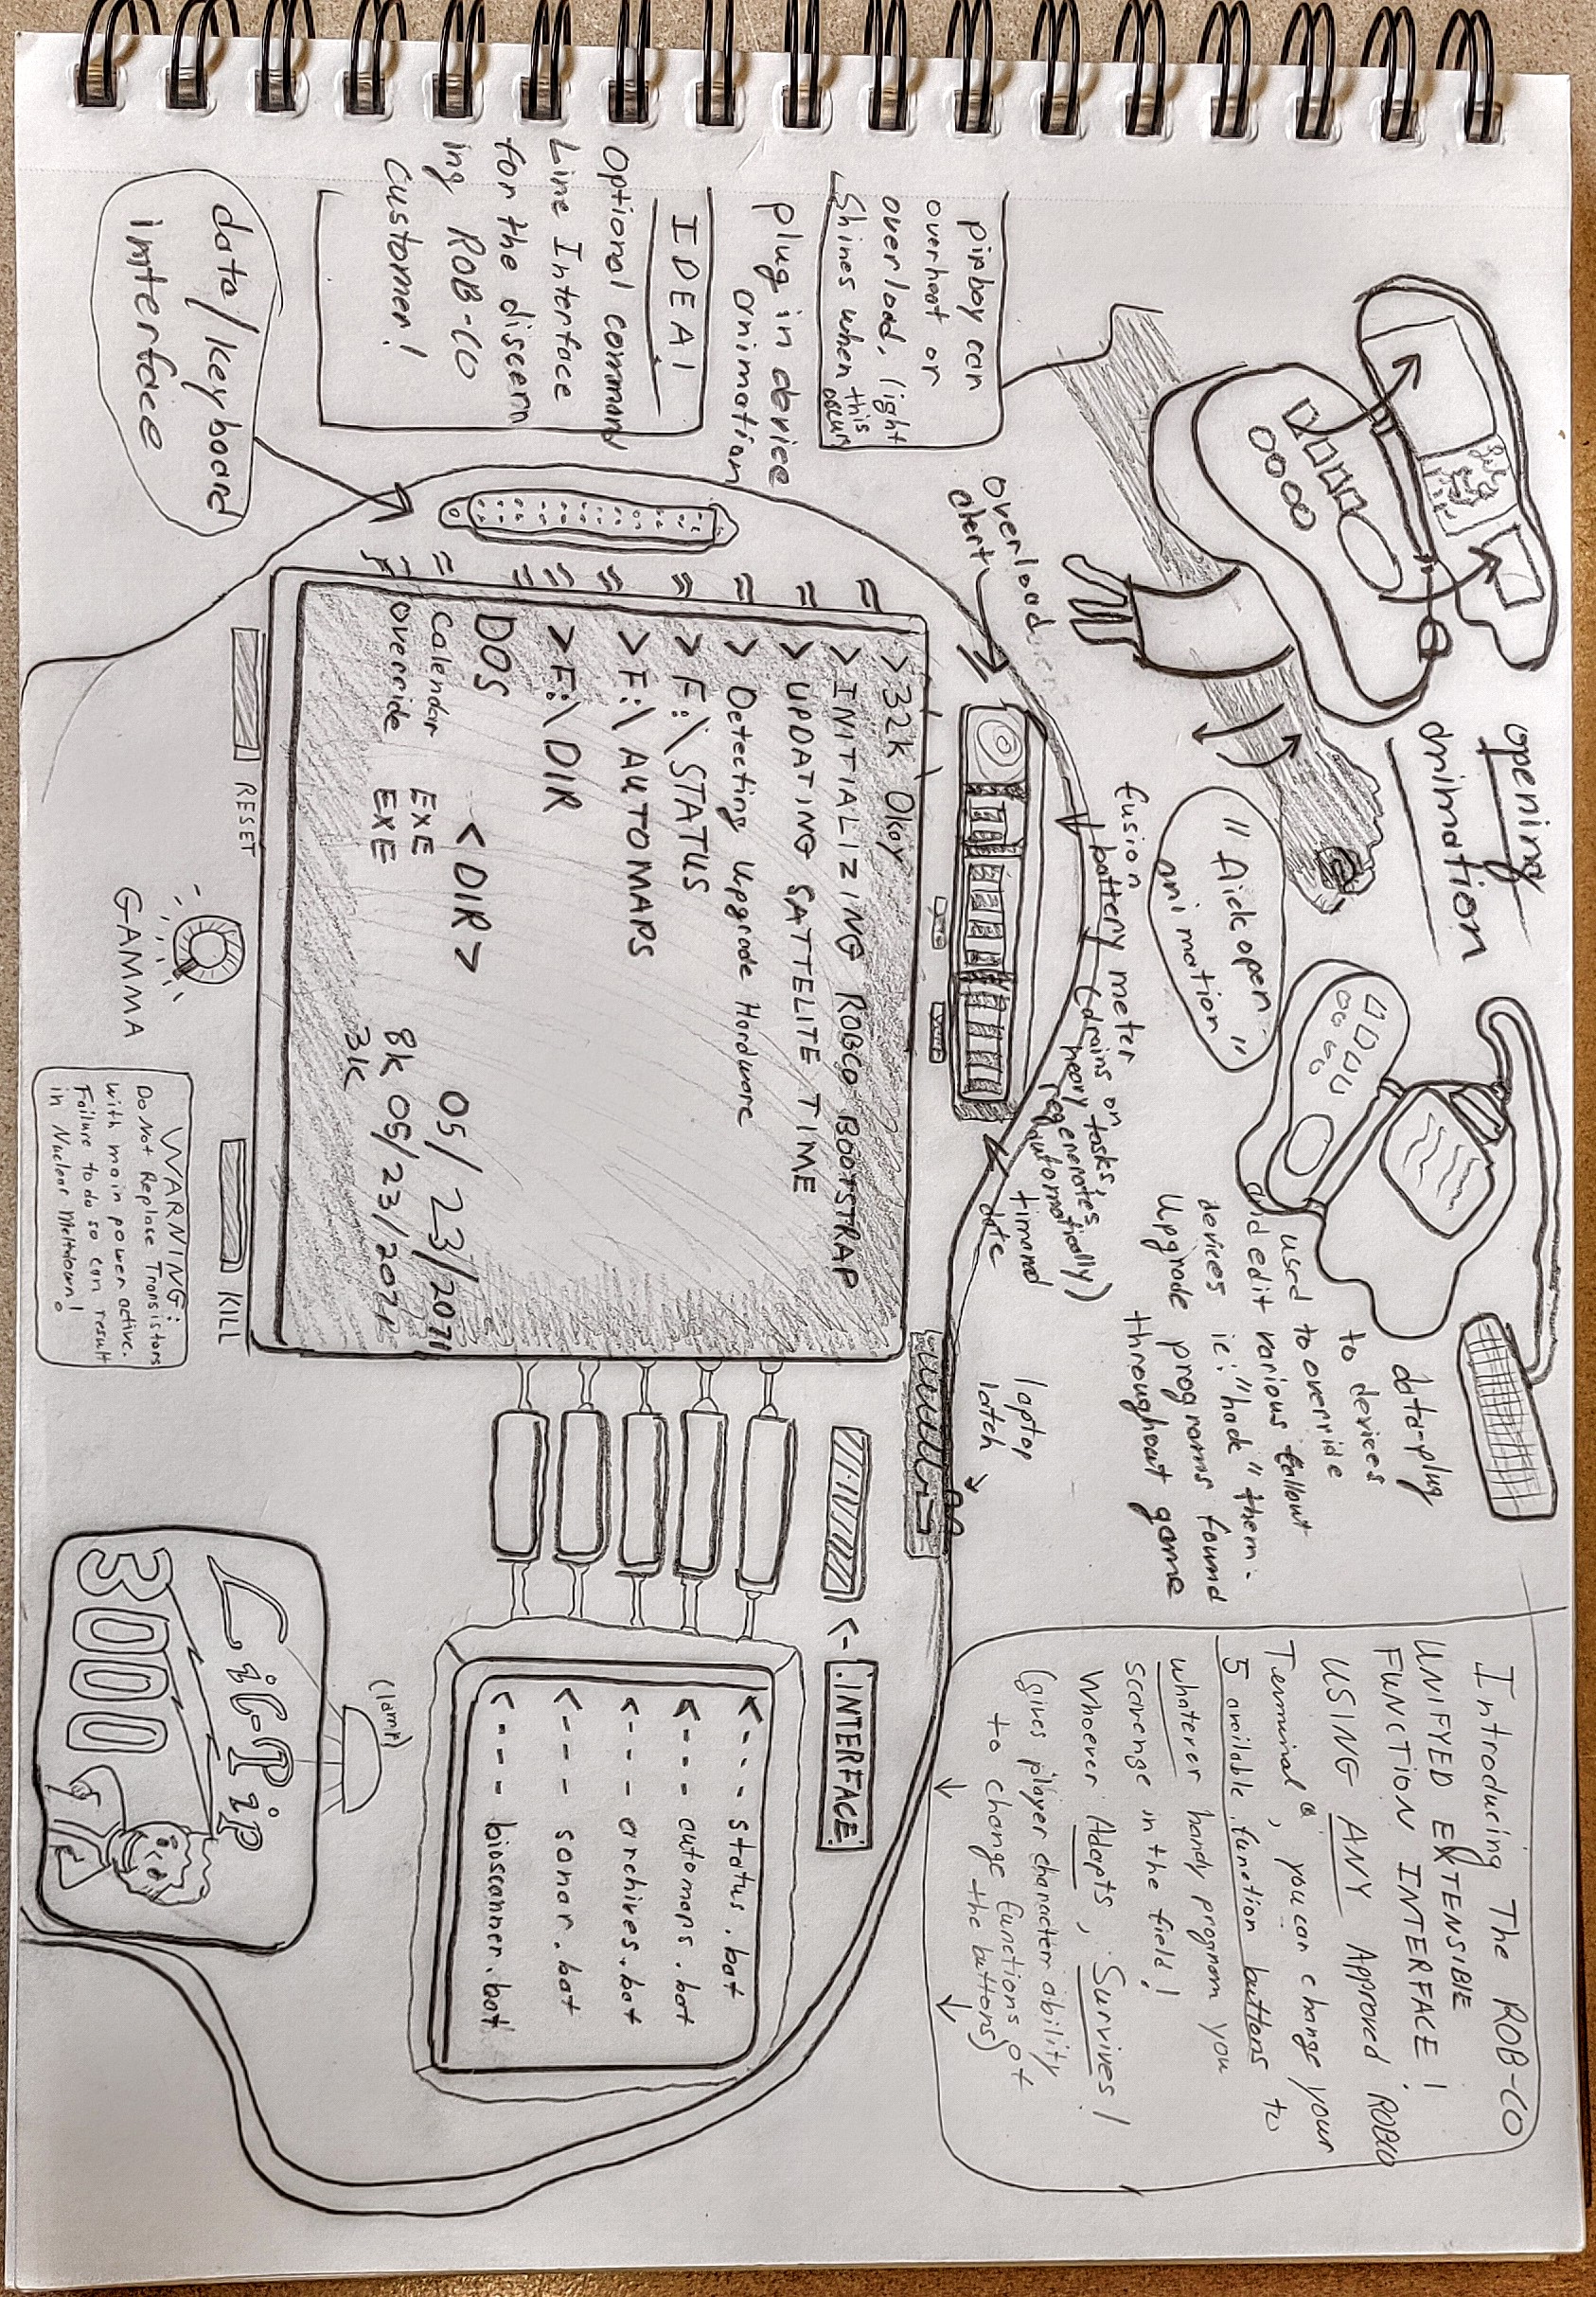 opening
animation
"flick open"
animation"
data-plug
to devices
used to override
and edit various fallout
devices ie: "hack" them.
Upgrade programs found
throughout game
Introducing The ROB-CO
UNIFYED EXTENSIBLE
FUNCTION INTERFACE!
USING ANY Approved ROBCO
Terminal, you can change your
5 available function buttons to
whatever handy program you
scavenge in the field!
Whoever Adapts, Survives!
(gives player character ability
to change functions of
the buttons)
pipboy can
overheat or
overload, light
Shines when this
occurs
plug in device
animation
IDEA!
Optional command
Line Interface
for the discern
ing ROB-CO
Customer!
data/keyboard
interface
overload
alert
fusion
battery meter
(drains on
heavy tasks,
regenerates
automatically)
time and
date
laptop
latch
>32k Okay
>INITIALIZING ROBCO BOOTSTRAP
>UPDATING SATTELITE TIME
>Detecting Upgrade Hardware
>F:\STATUS
>F:\AUTOMAPS
>F:\DIR
DOS <DIR> 05/23/2071
Calendar EXE 8k 05/23/2071
override EXE 3k
RESET
GAMMA
KILL
WARNING:
Do Not Replace Transistors
with main power active.
Failure to do so can result
in Nuclear Meltdown!
<- .INTERFACE.
<--- status.bat
<--- automaps.bat
<--- archives.bat
<--- sonar.bat
<--- bioscanner.bat
(lamp)
Lil-Pip
3000